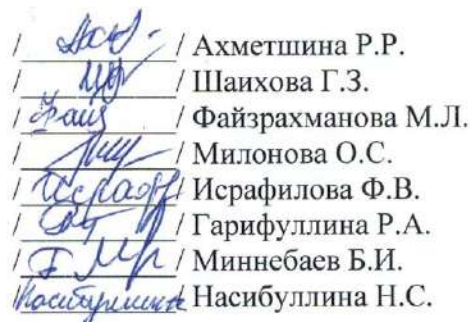 / / Ахметшина Р.Р.
/ / Шаихова Г.З.
/ Фаиз / Файзрахманова М.Л.
/ / Милонова О.С.
/ Исраф / Исрафилова Ф.В.
/ / Гарифуллина Р.А.
/ / Миннебаев Б.И.
/ Насибуллина Насибуллина Н.С.